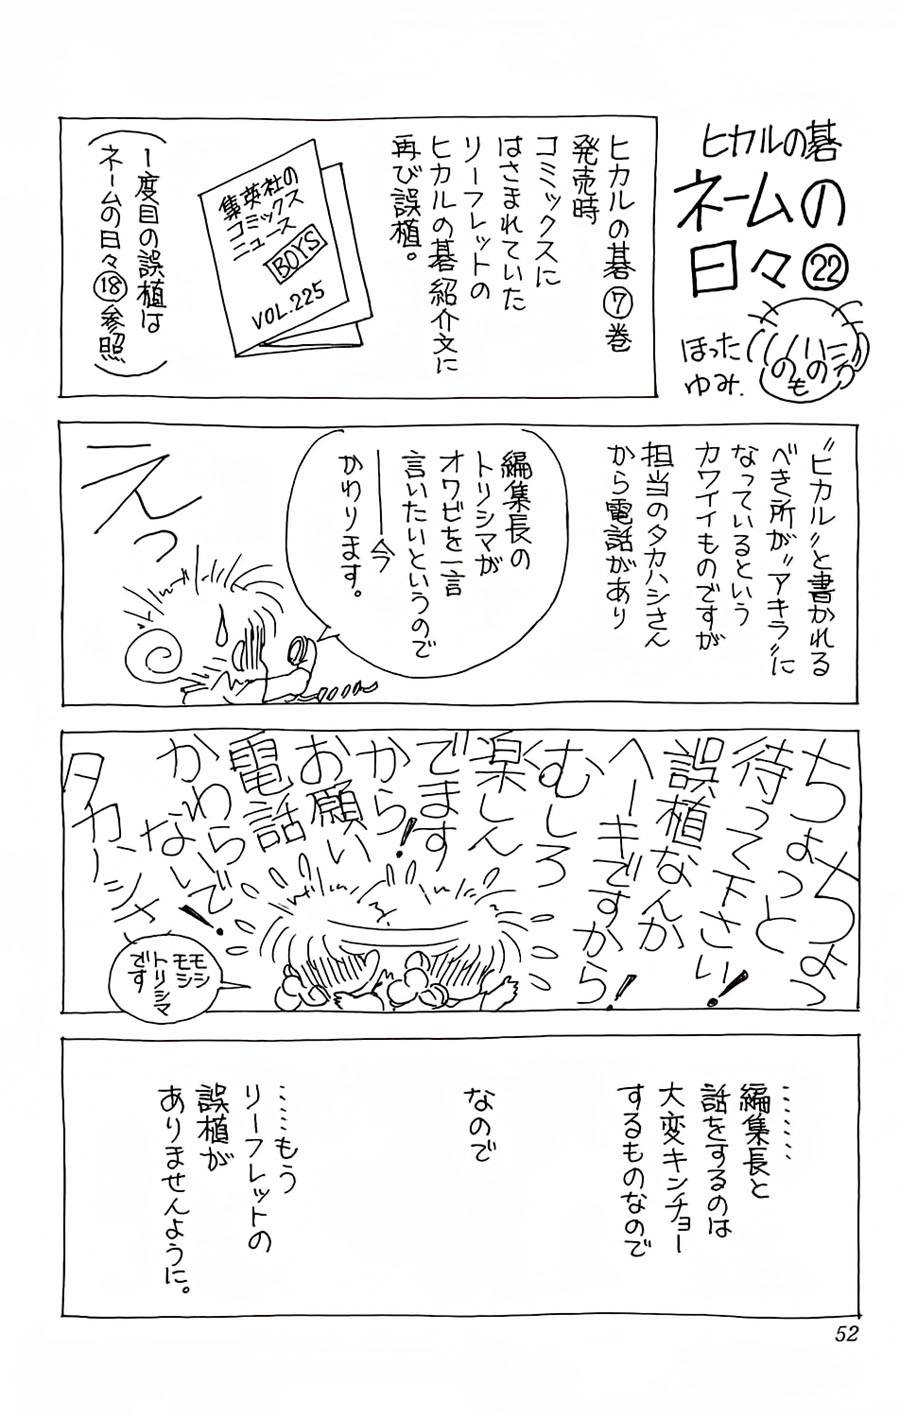 ヒカルの碁
ネームの
日々㉒
ほった
ゆみ.
ヒカルの碁⑦巻
発売時
コミックスに
はさまれていた
リーフレットの
ヒカルの碁紹介文に
再び誤植。
集英社の
コミックス
ニュース
BOYS
VOL.225
(1度目の誤植は
ネームの日々⑱参照)
"ヒカル"と書かれる
べき所が"アキラ"に
なっているという
カワイイものですが
担当のタカハシさん
から電話があり
編集長の
トリシマが
オワビを一言
言いたいというので
――今
かわります。
えっ
ちょっちょう
ちょっと
待って下さい!
誤植なんか
ヘーキですから!
むしろ
楽しん
でます
から!
お願い
電話
かわらないで!
タカハシさ
モシ
モシ
トリシマ
です
……
編集長と
話をするのは
大変キンチョー
するものなので
なので
……もう
リーフレットの
誤植が
ありませんように。
52